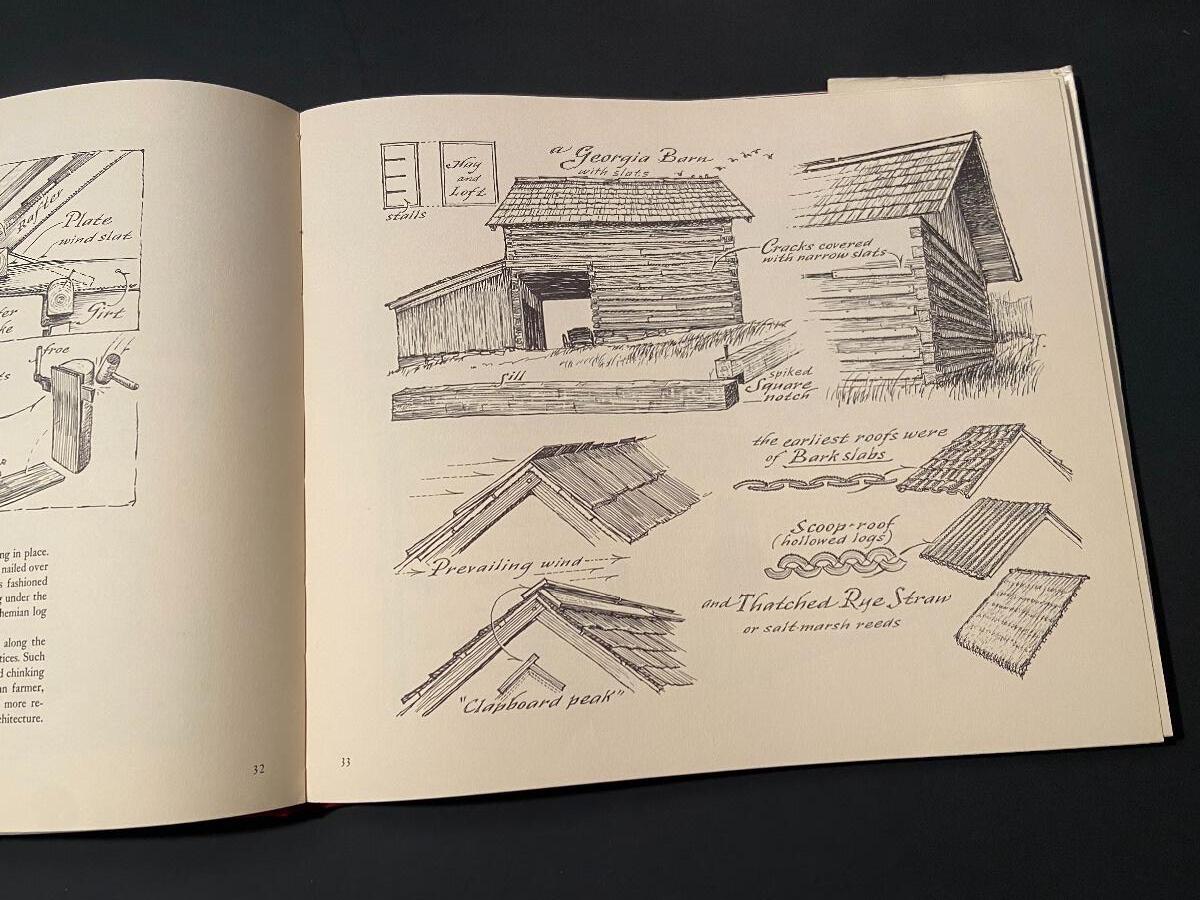 rafter
Plate
wind slat
Girt
froe
ng in place.
nailed over
s fashioned
g under the
hemian log
along the
tices. Such
d chinking
an farmer,
more re-
chitecture.
32
stalls
Hay
and
Loft
a Georgia Barn
with slats
Cracks covered
with narrow slats
sill
spiked
Square
notch
Prevailing wind
"Clapboard peak"
the earliest roofs were
of Bark slabs
Scoop-roof
(hollowed logs)
and Thatched Rye Straw
or salt-marsh reeds
33